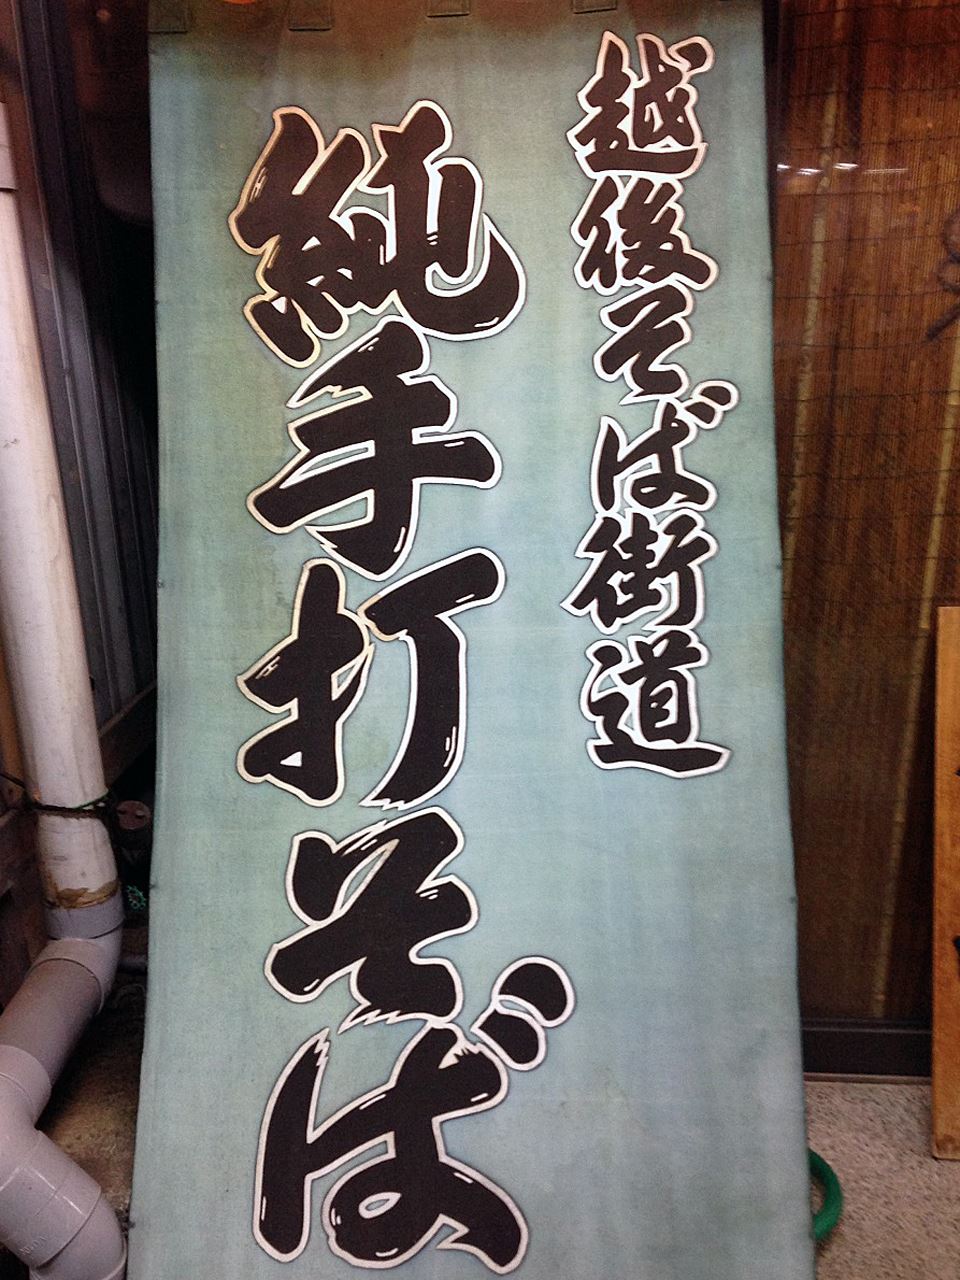 越後そば街道
純手打そば